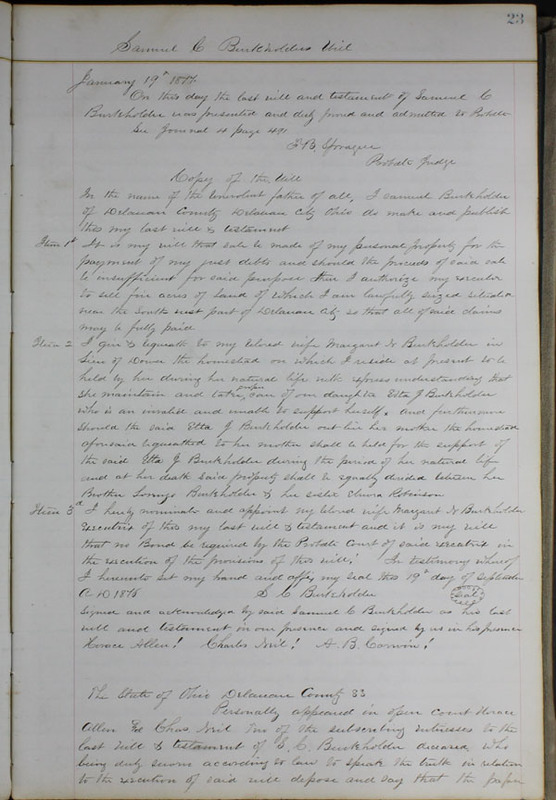 23
Samuel C Burkholders Will
January 19th 1877
On this day the last will and testament of Samuel C
Burkholder was presented and duly proved and admitted to Probate
See Journal 4 page 491
F B. Sprague
Probate Judge
Copy of the Will
In the name of the benevolent father of all, I Samuel Burkholder
of Delaware County Delaware City Ohio do make and publish
this my last will & testament
Item 1st It is my will that sale be made of my personal property for the
payment of my just debts and should the proceeds of said sale
be insufficient for said purpose then I authorize my executor
to sell five acres of land of which I am lawfully seized situated
near the South west part of Delaware City so that all of said claims
may be fully paid
Item 2 I give & bequeath to my beloved wife Margaret N Burkholder in
lieu of Dower the homestead on which I reside at present to be
held by her during her natural life with express understanding that
She maintain and take proper care of our daughter Etta J Burkholder
who is an invalid and unable to support herself. And furthermore
should the said Etta J Burkholder out live her mother the homestead
aforesaid bequeathed to her mother shall be held for the support of
the said Etta J Burkholder during the period of her natural life
and at her death said property shall be equally divided between her
Brother Burkholder & her sister Robinson
Item 3d I hereby nominate and appoint my beloved wife Margaret N Burkholder
executrix of this my last will & testament and it is my will
that no Bond be required by the Probate Court of said executrix in
the execution of the provisions of this will! In testimony whereof
I hereunto set my hand and affix my seal this 19th day of September
A D 1876 S C Burkholder Seal
Signed and acknowledged by said Samuel C Burkholder as his last
will and testament in our presence and signed by us in his presence
Horace Allen! Charles Neil! A. B. Corwin!
The State of Ohio Delaware County SS
Personally appeared in open court Horace
Allen & Chas Neil two of the subscribing witnesses to the
last will & testament of S. C. Burkholder deceased, who
being duly sworn according to law to speak the truth in relation
to the execution of said will depose and say that the paper